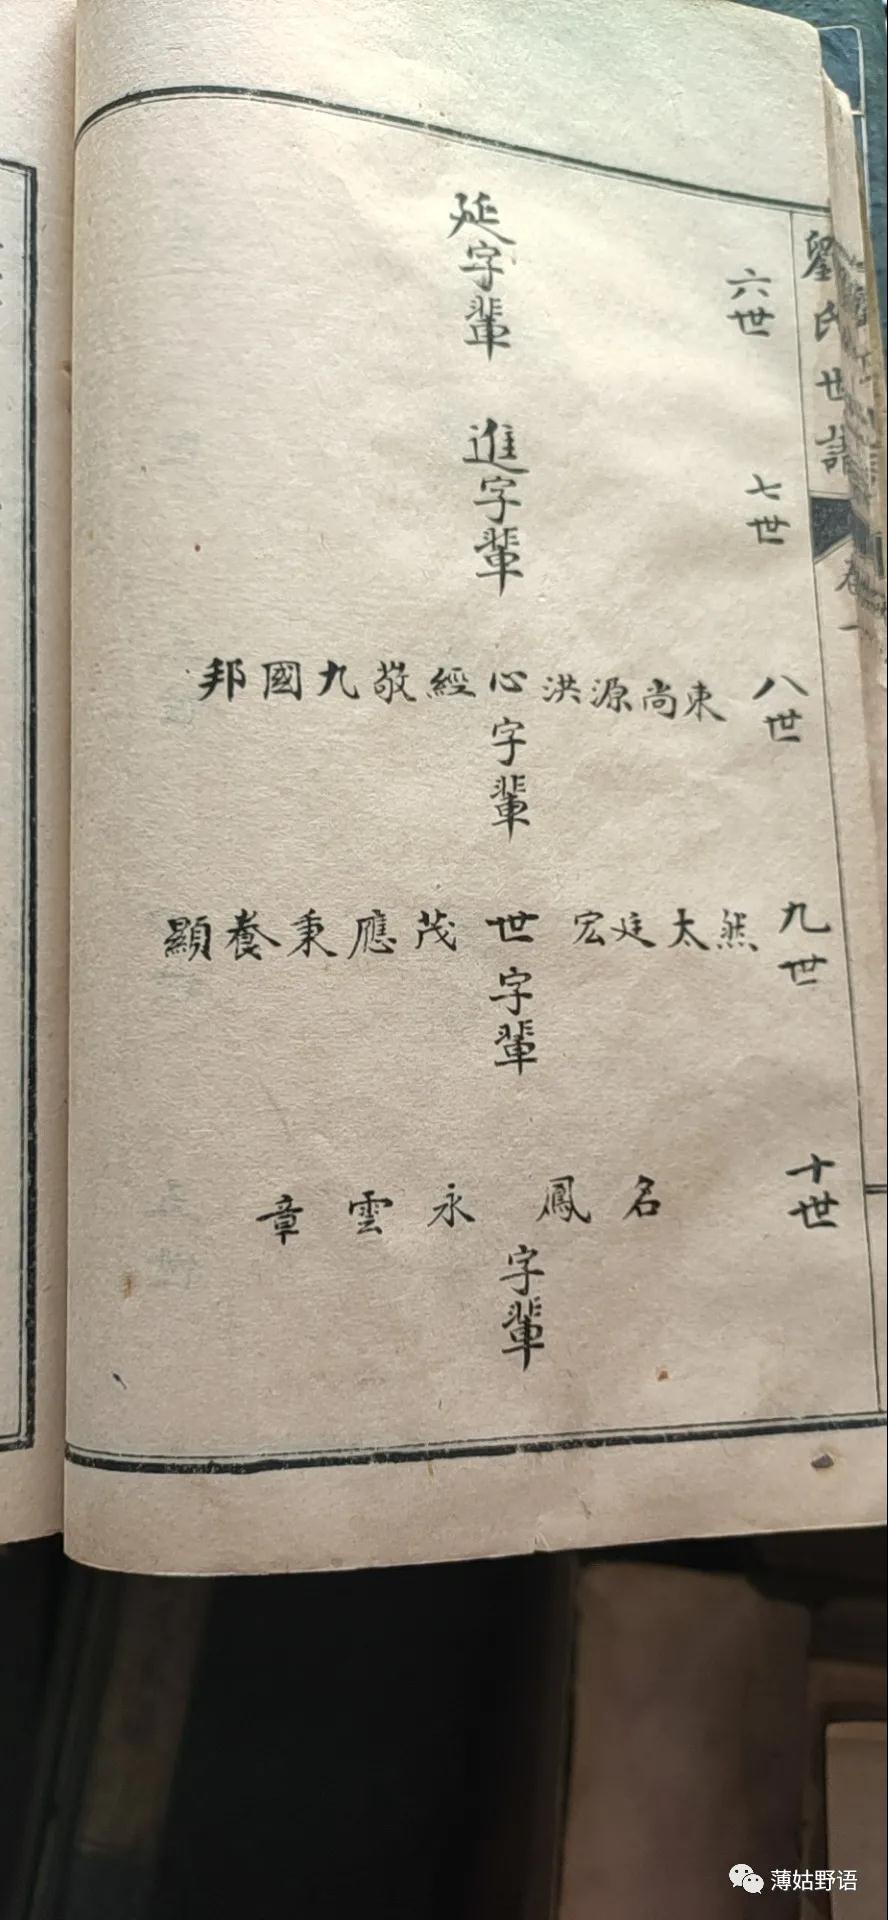 劉氏世譜
卷一
六世
延字輩
七世
進字輩
八世
東尚源洪心經敬九國邦
字輩
九世
然太廷宏世茂應秉養顯
字輩
十世
名鳳永雲章
字輩
薄姑野语